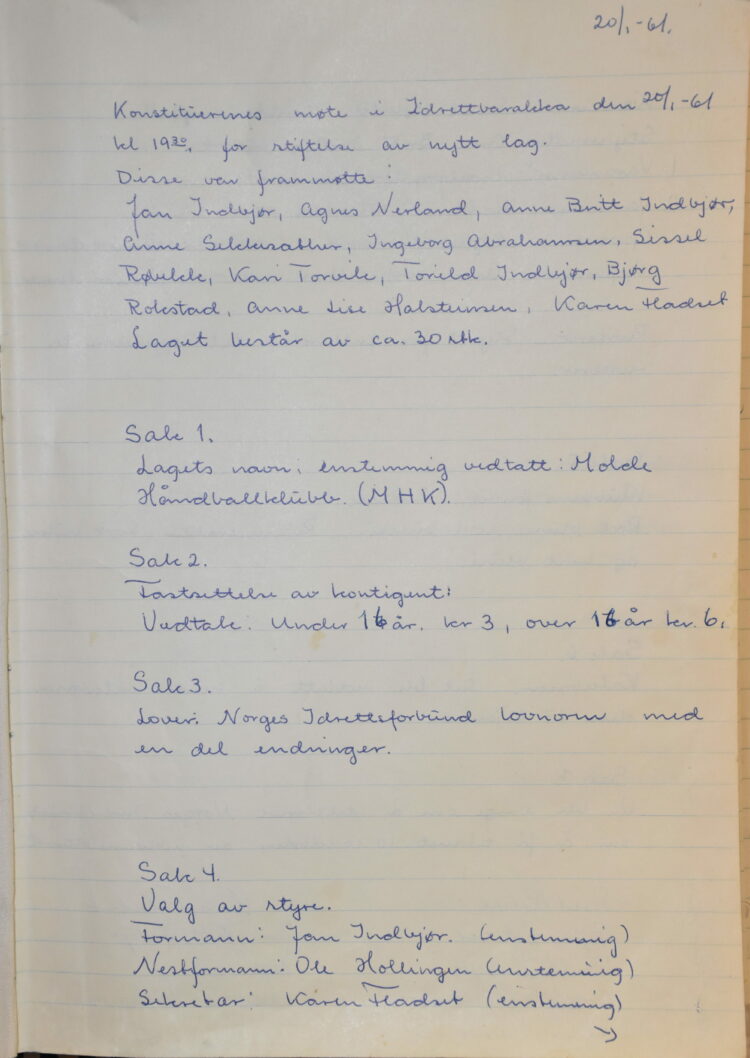 20/1-61.
Konstituerenes møte i Idrettbarakka den 20/1-61
kl 19³⁰, for stiftelse av nytt lag.
Disse var frammøtte:
Jan Indbjør, Agnes Nerland, Anne Britt Indbjør,
Anne Sekkesæther, Ingeborg Abrahamsen, Sissel
Røbekk, Kari Torvik, Torild Indbjør, Bjørg
Rokstad, Anne Lise Halsteinsen, Karen Fladset
Laget består av ca. 30 stk.
Sak 1.
Lagets navn: enstemmig vedtatt: Molde
Håndballklubb. (MHK).
Sak 2.
Fastsettelse av kontigent:
Vedtak: Under 16 år. kr 3, over 16 år kr. 6.
Sak 3.
Lover: Norges Idrettsforbund lovnorm med
en del endringer.
Sak 4.
Valg av styre.
Formann: Jan Indbjør. (enstemmig)
Nestformann: Ole Hollingen (enstemmig)
Sekretær: Karen Fladset (enstemmig)
→